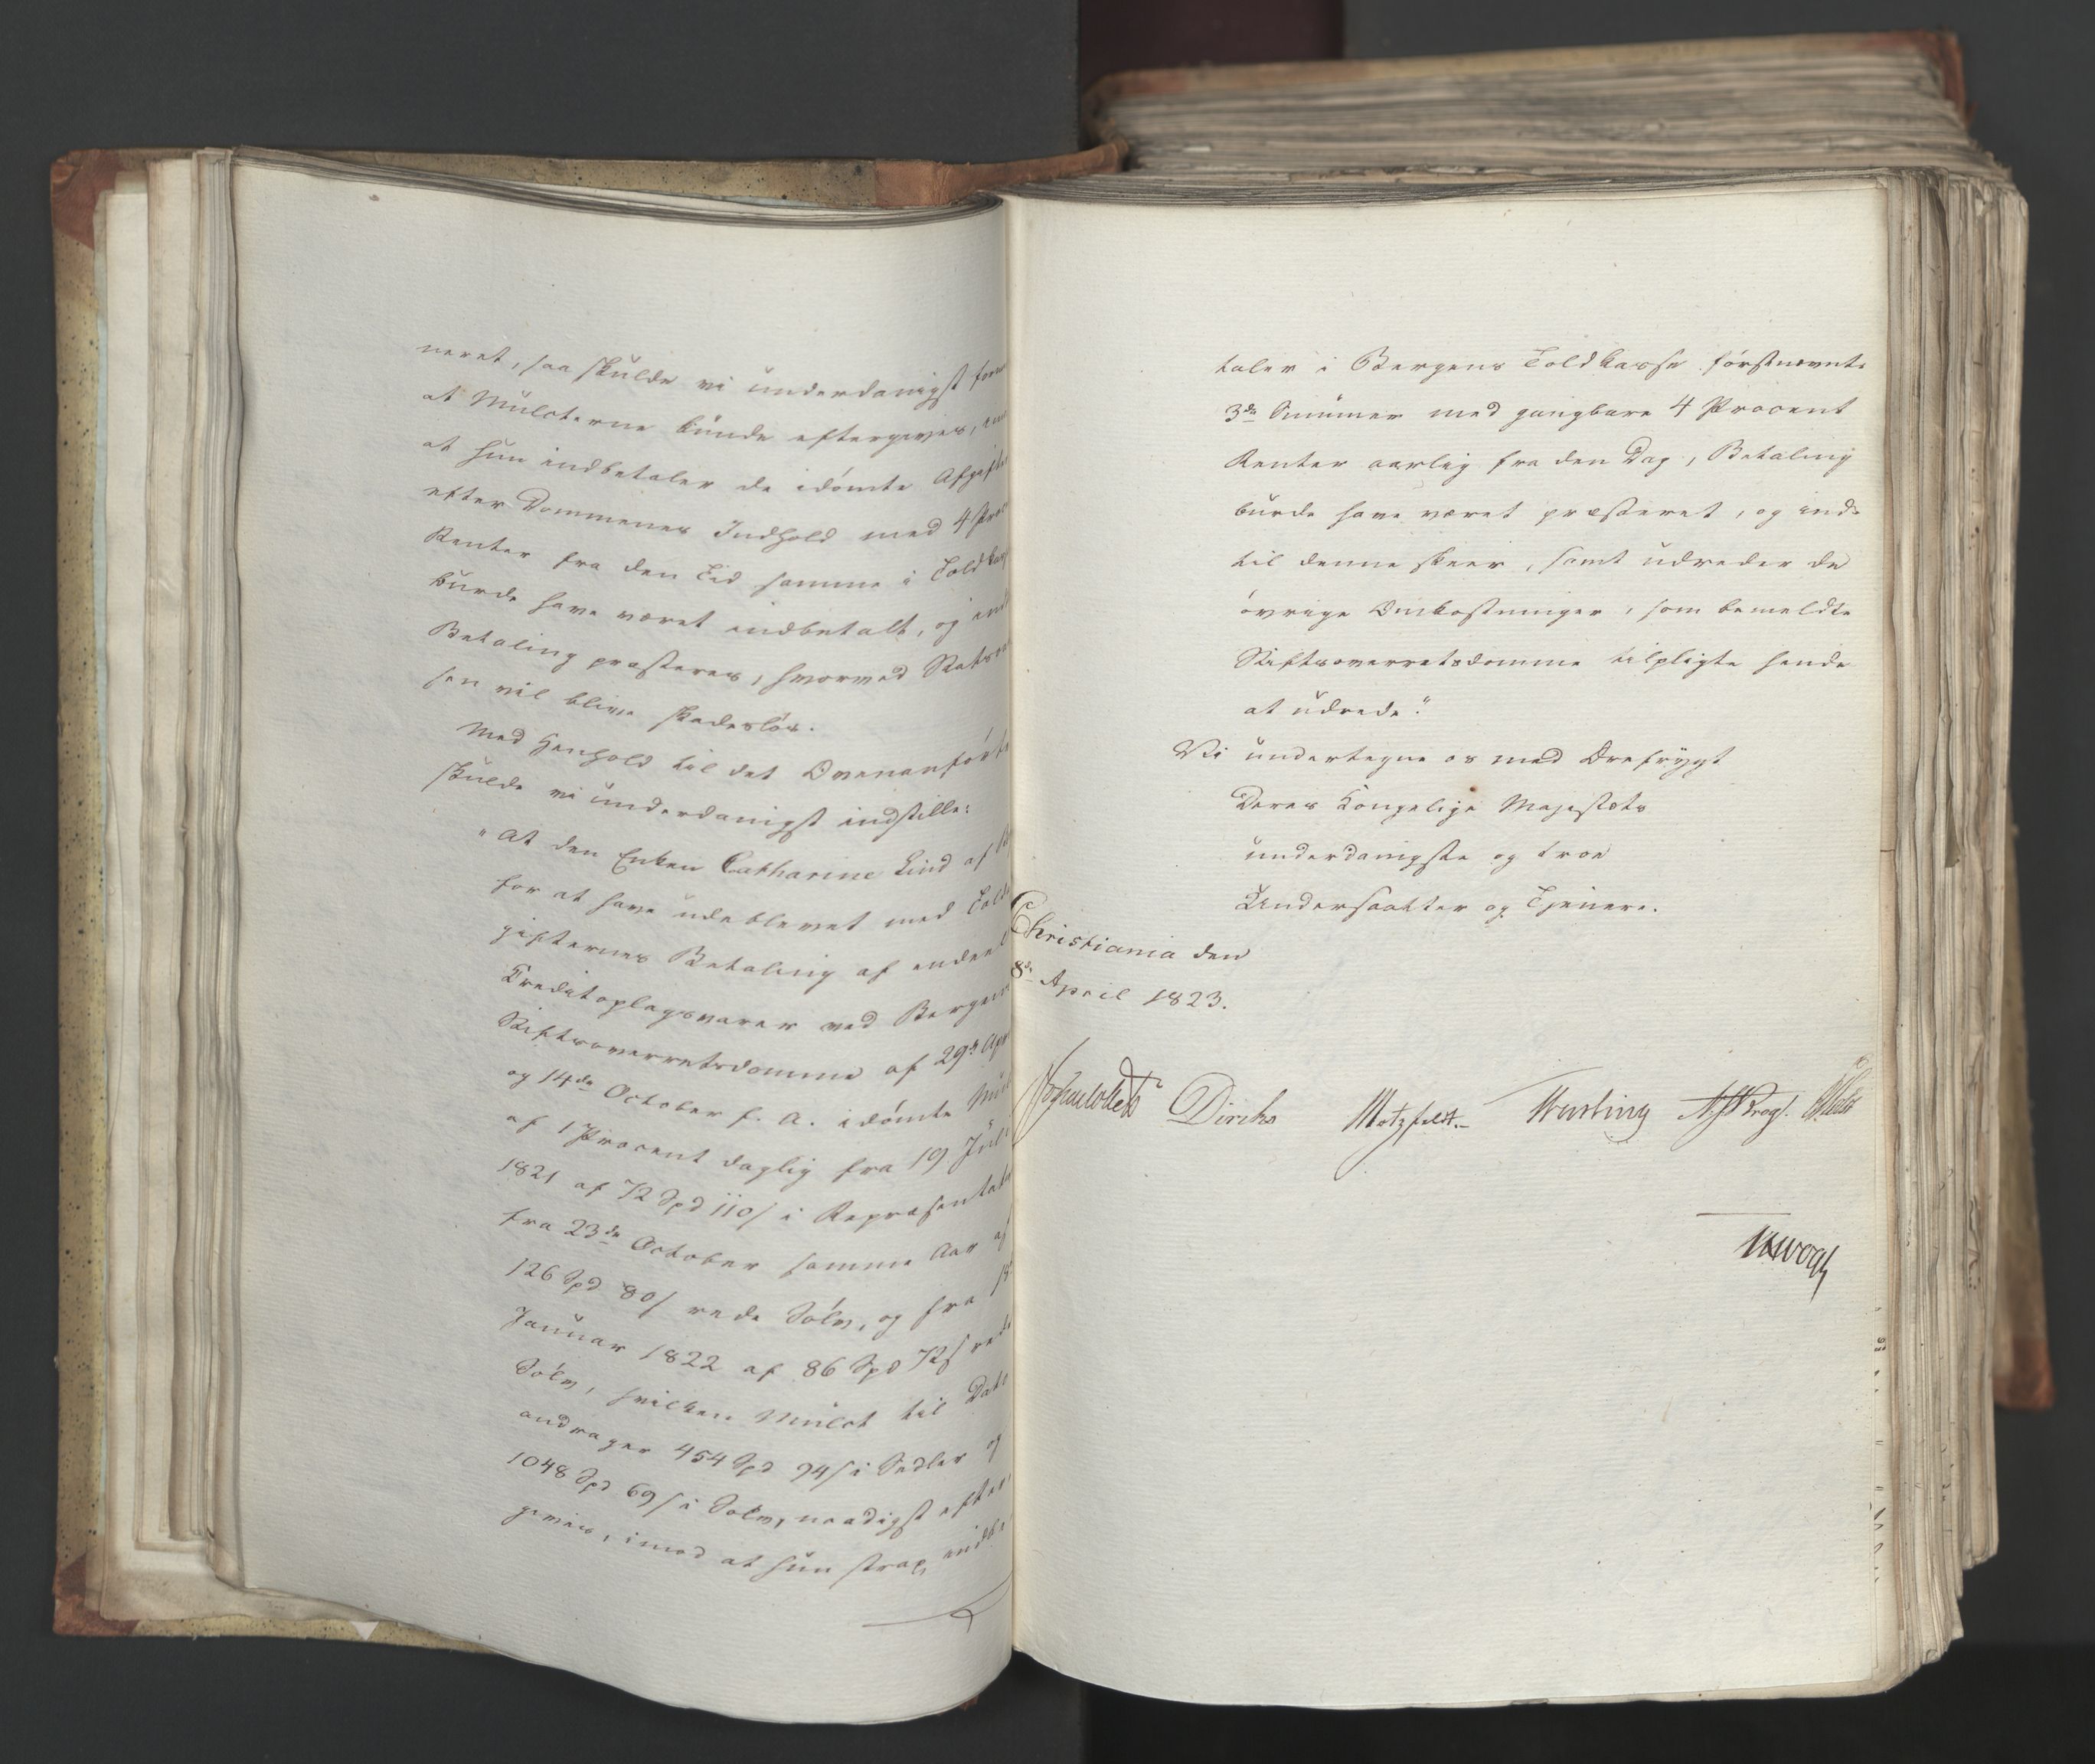 neret, saa skulde vi underdanigst
at Mulcterne kunde eftergives,
at hun indbetaler de idömte
efter Dommenes Indhold med 4
Renter fra den Tid samme i
burde have været indbetalt, og
Betaling præsteres, hvorved
sen vil blive skadeslös.
Med Henhold til det
skulde vi underdanigst indstille:
"At den Enken Catharine Lind af
for at have udeblevet med
gifternes Betaling af endeel
Creditoplagsvarer ved Bergens
Stiftsoverretsdomme af 29de
og 14de October f. A. idömte
af 1 Procent daglig fra 19
1821 af 72 Spd 110 s i
fra 23de October samme Aar af
126 Spd 80 s rede Sölv, og fra
Januar 1822 af 86 Spd 72 s rede
Sölv, hvilken Mulct til Dato
andrager 454 Spd 94 s i Sedler og
1048 Spd 69 s i Sölv, naadigst efter
gives, imod at hun strax
taler i Bergens Toldkasse förstnævnte
3de Summer med gangbare 4 Procent
Renter aarlig fra den Dag, Betaling
burde have været præsteret, og ind-
til denne skeer, samt udreder de
övrige Omkostninger, som bemeldte
Stiftsoverretsdomme tilpligte hende
at udrede."
Vi undertegne os med Ærefrygt
Deres Kongelige Majestæts
underdanigste og troe
Undersaatter og Tjenere.
Christiania den
8de April 1823.
Diriks Motzfeldt.